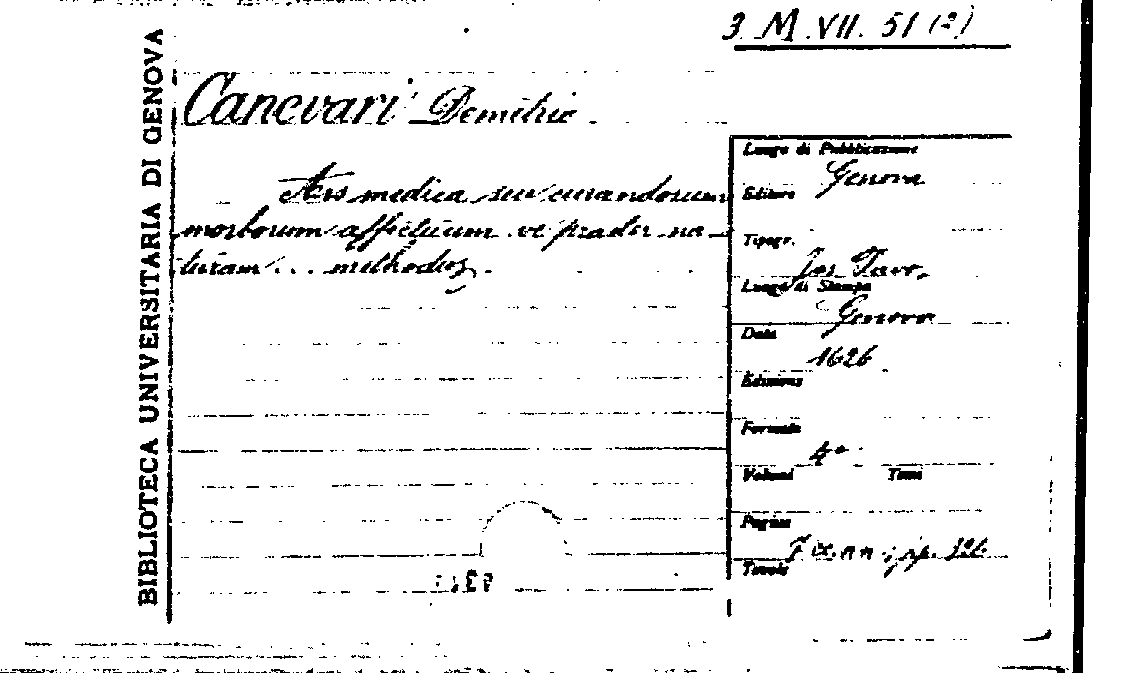 3 M.VII. 51 (2)
BIBLIOTECA UNIVERSITARIA DI GENOVA
Canevari Demetrio
Ars medica seu curandorum
morborum affectuum ve praeter na-
turam ... methodus.
Luogo di Pubblicazione
Genova
Editore
Tipogr.
Jos. Pavo,
Luogo di Stampa
Genova
Data
1626
Edizione
Formato
4°
Volumi Tomi
Pagine
Tavole